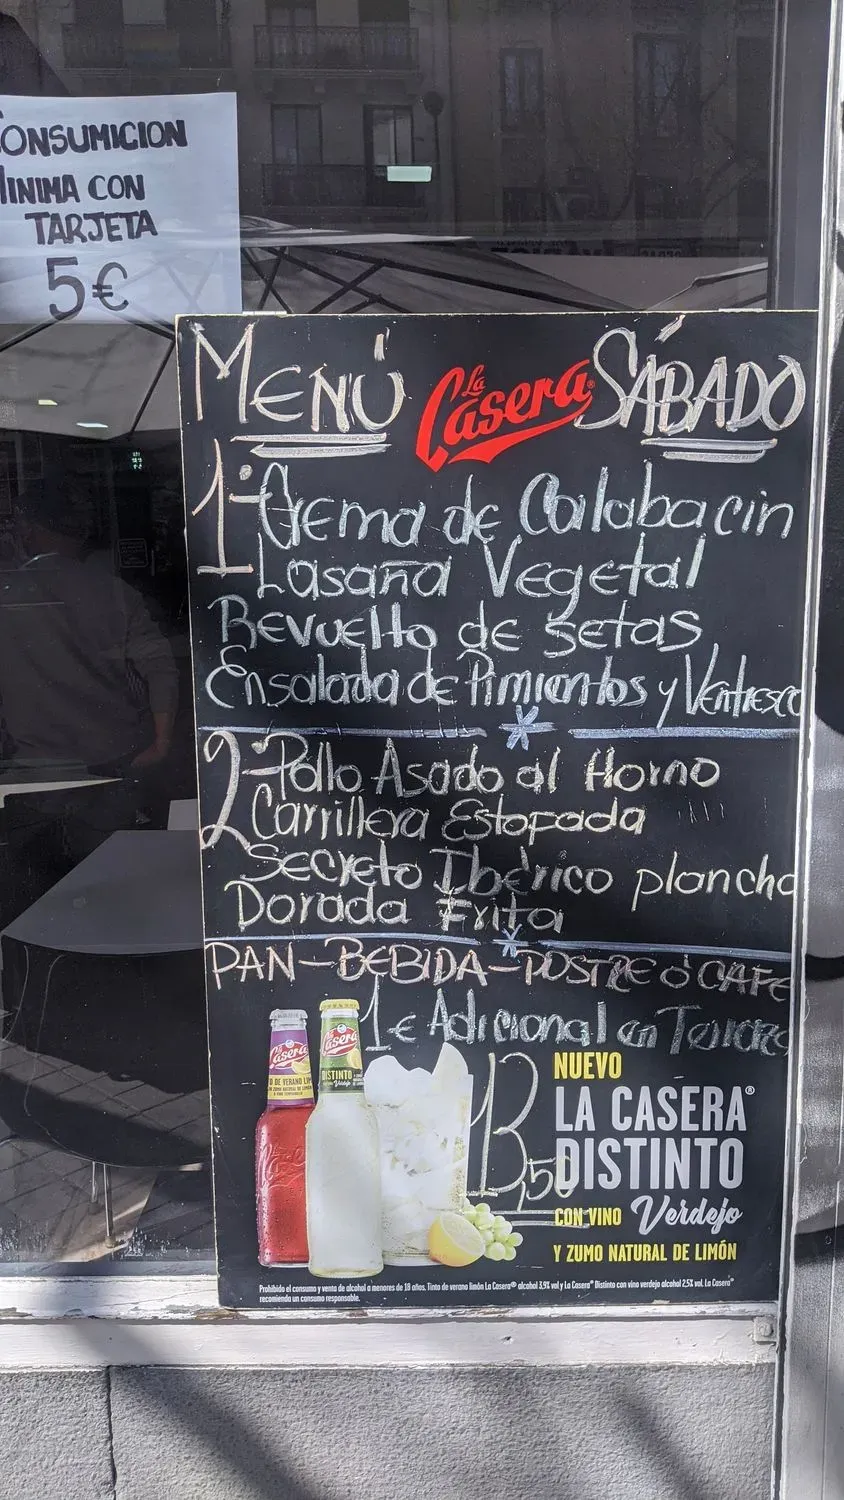 CONSUMICION
MINIMA CON
TARJETA
5€
MENÚ La Casera® SÁBADO
1º Crema de Calabacin
Lasaña Vegetal
Revuelto de setas
Ensalada de Pimientos y Ventresca
2º Pollo Asado al Horno
Carrillera Estofada
Secreto Ibérico plancha
Dorada Frita
PAN-BEBIDA-POSTRE ó CAFE
1€ Adicional en Terraza
13,50
NUEVO
LA CASERA®
DISTINTO
CON VINO Verdejo
Y ZUMO NATURAL DE LIMÓN
La Casera
La Casera
DISTINTO
Verdejo
Prohibido el consumo y venta de alcohol a menores de 18 años. Tinto de verano limón La Casera® alcohol 3,9% vol y La Casera® Distinto con vino verdejo alcohol 2,5% vol. La Casera®
recomienda un consumo responsable.